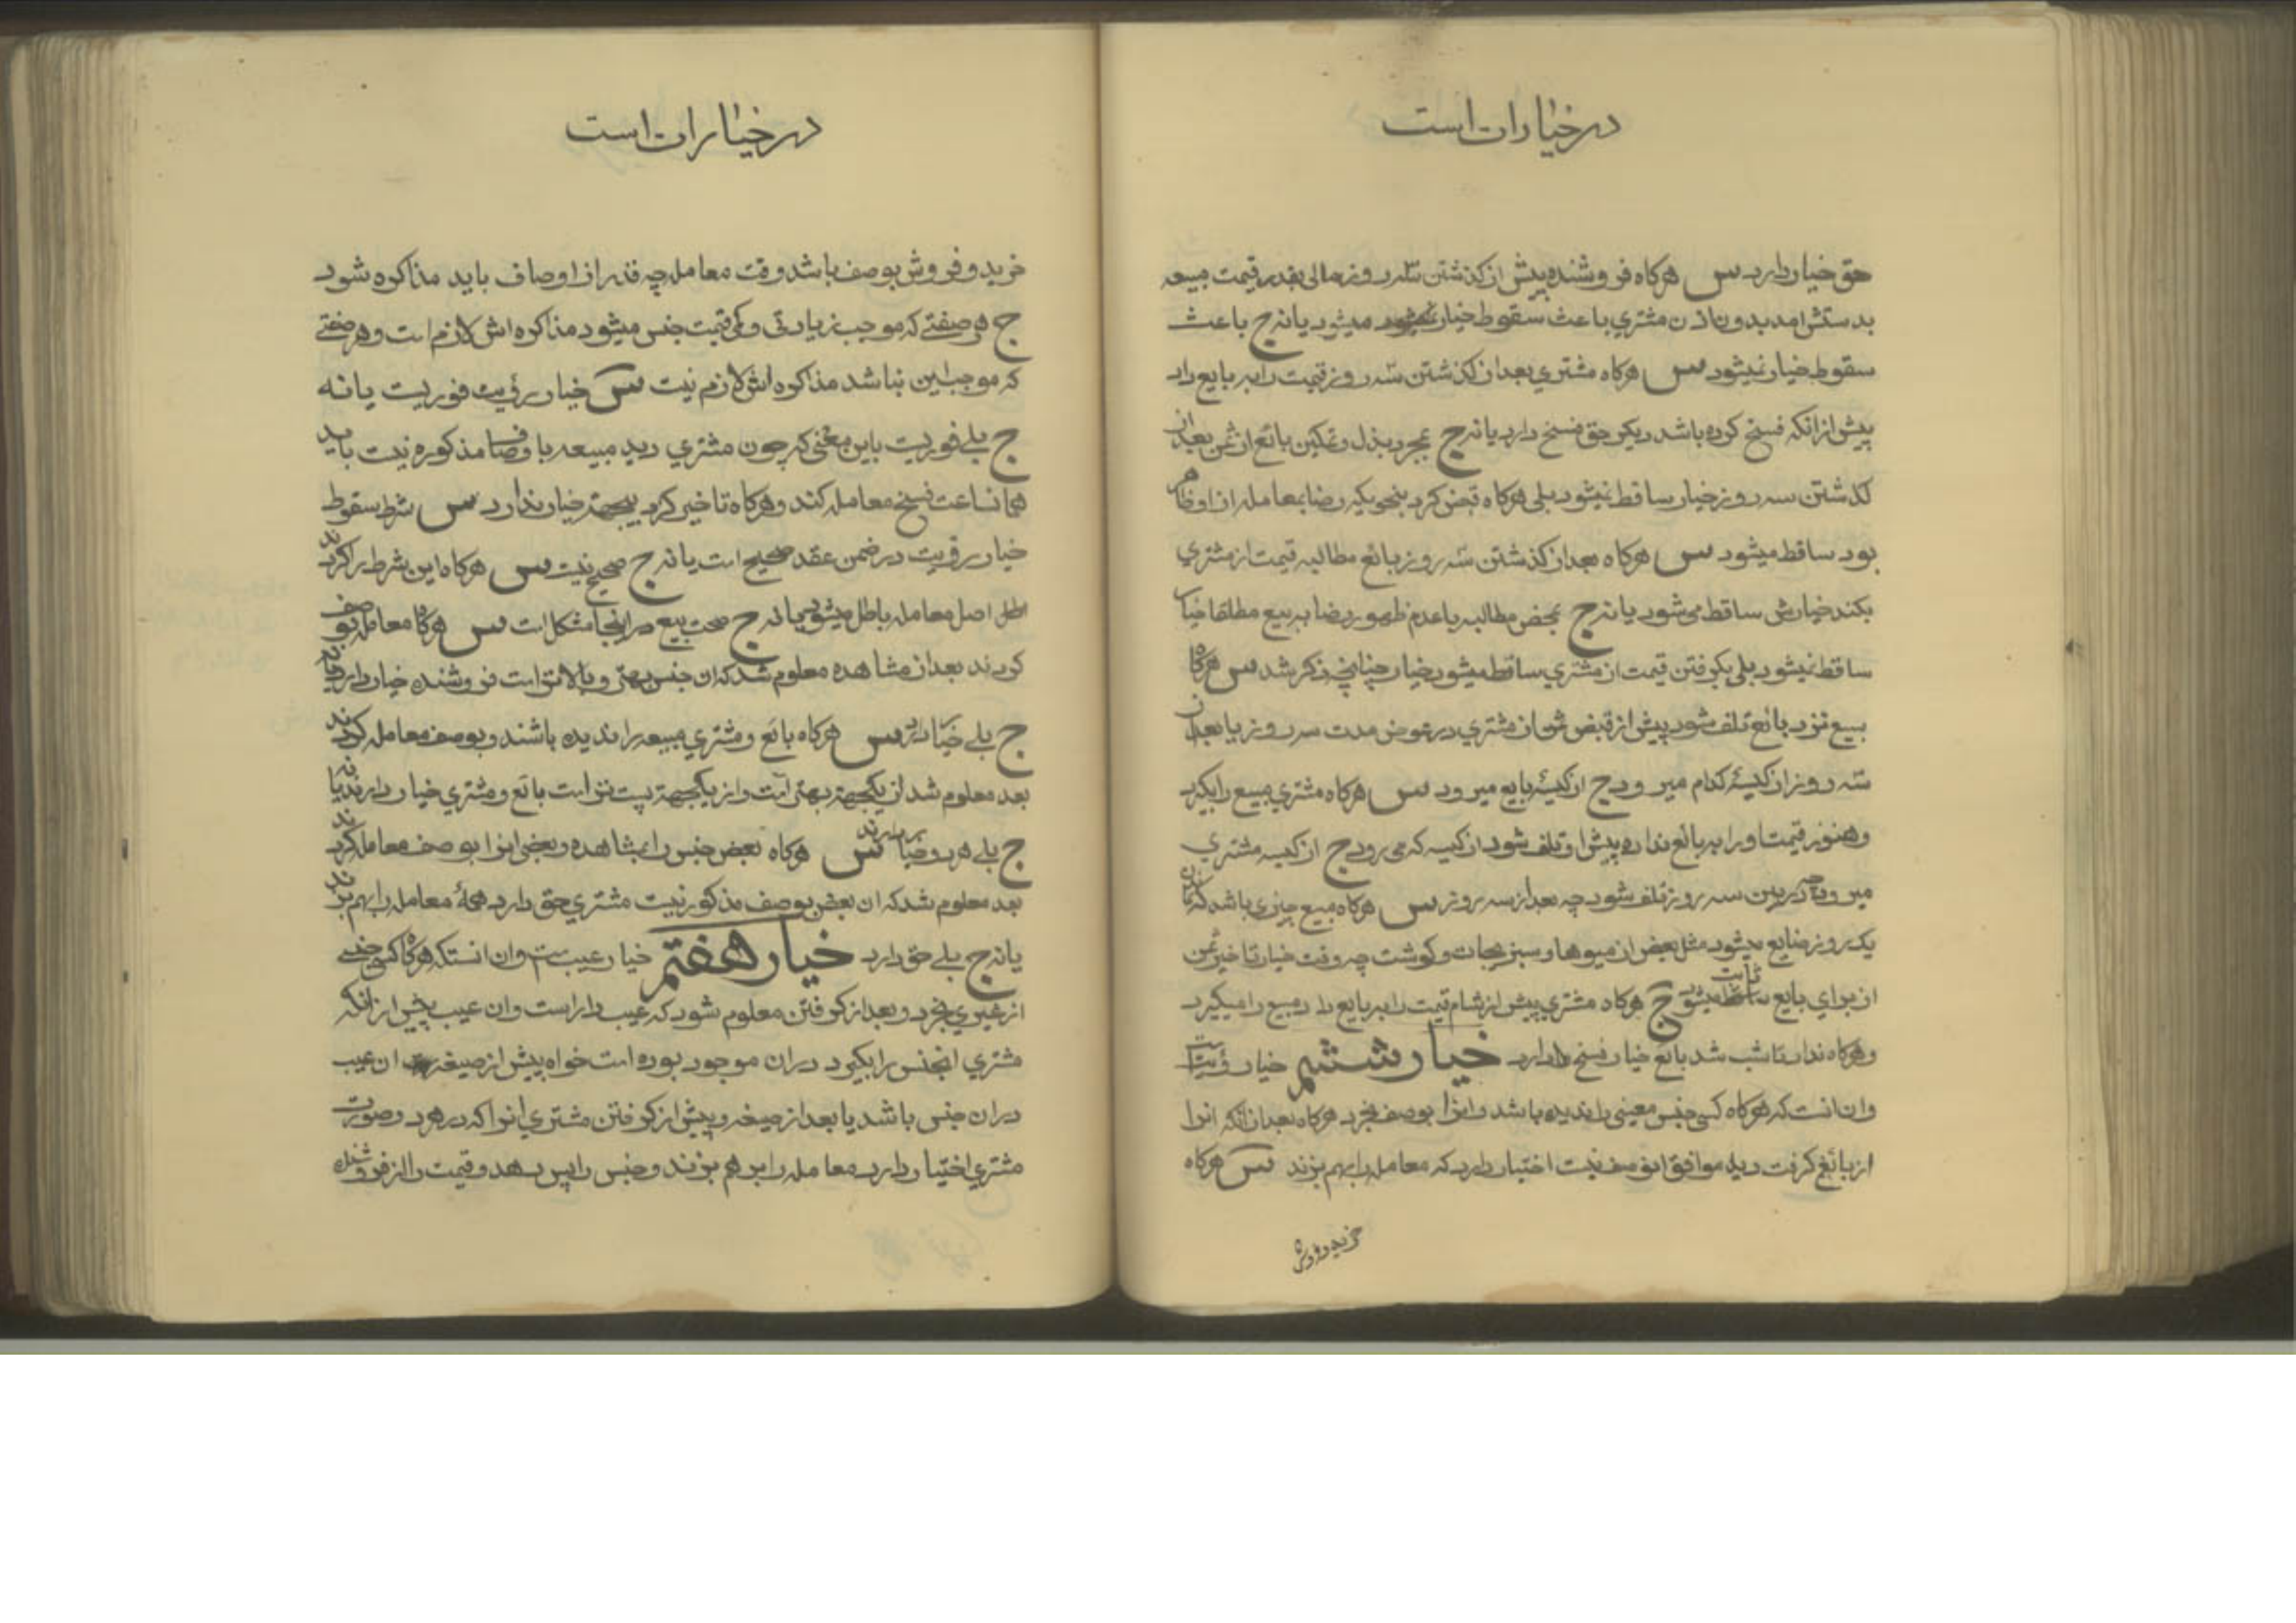 در خیارات است
حق خیار دارد س هرکاه فروشنده پیش از کذشتن سه روز مالی بقدر قیمت مبیعه
بدستش امد بدون اذن مشتری باعث سقوط خیار میشود یا نه ج باعث
سقوط خیار نمیشود س هرکاه مشتری بعد از کذشتن سه روز قیمت را به بایع داد
پیش از انکه فسخ کرده باشد دیکر حق فسخ دارد یا نه ج بمجرد بذل و تمکین بائع از ثمن بعد از
کذشتن سه روز خیار ساقط نمیشود بلی هرکاه قبض کرد بنحویکه رضا بمعامله از او ظاهر
بود ساقط میشود س هرکاه بعد از کذشتن سه روز بائع مطالبه قیمت از مشتری
بکند خیارش ساقط می شود یا نه ج بمحض مطالبه با عدم ظهور رضا به بیع مطلقا خیار
ساقط نمیشود بلی بکرفتن قیمت از مشتری ساقط میشود خیار چنانچه ذکر شد س هرکاه
بیع نزد بائع تلف شود پیش از قبض ثمن از مشتری در عوض مدت سه روز یا بعد از
سه روز از کیسهٔ کدام میرود ج از کیسهٔ بایع میرود س هرکاه مشتری مبیع را بکیرد
و هنوز قیمت او را به بائع نداده پیش او تلف شود از کیسه که می رود ج از کیسه مشتری
میرود چه در بین سه روز تلف شود چه بعد از سه روز س هرکاه مبیع چیزی باشد که تا
یک روز ضایع میشود مثل بعض از میوها و سبزیجات و کوشت چه وقت خیار تاخیر ثمن
از برای بایع ثابت میشود ج هرکاه مشتری پیش از شام قیمت را به بایع داد مبیع را میکیرد
و هرکاه نداد تا شب شد بائع خیار فسخ دارد خیار ششم خیار رؤیت است
و ان انست که هرکاه کسی جنس معینی را ندیده باشد و انرا بوصف بخرد هرکاه بعد از انکه انرا
از بائع کرفت دید موافق انوصف نیست اختیار دارد که معامله را بهم بزند س هرکاه
خرید و فروش
در خیارات است
خرید و فروش بوصف باشد وقت معامله چه قدر از اوصاف باید مذاکره شود
ج هر صفتی که موجب زیادتی و کمی قیمت جنس میشود مذاکره اش لازم است و هر صفتی
که موجب این نباشد مذاکره اش لازم نیست س خیار رؤیت فوریست یا نه
ج بلی فوریست باین معنی که چون مشتری دید مبیعه با وصفها مذکوره نیست باید
همانساعت فسخ معامله کند و هرکاه تاخیر کرد بیجهته خیار ندارد س شرط سقوط
خیار رؤیت در ضمن عقد صحیح است یا نه ج صحیح نیست س هرکاه این شرط را کردند
اصل معامله باطل میشود یا نه ج صحت بیع در اینجا مشکل است س هرکاه معامله بوصف
کردند بعد از مشاهده معلوم شد که ان جنس بهتر و بالاتر است فروشنده خیار دارد یا نه
ج بلی خیار دارد س هرکاه بائع و مشتری مبیعه را ندیده باشند و بوصف معامله کردند
بعد معلوم شد از یکجهته بهتر است و از یکجهته پست تر است بائع و مشتری خیار دارند یا نه
ج بلی هر دو خیار دارند س هرکاه بعض جنس را بمشاهده و بعضی انرا بوصف معامله کردند
بعد معلوم شد که ان بعض بوصف مذکور نیست مشتری حق دارد همهٔ معامله را بهم بزند
یا نه ج بلی حق دارد خیار هفتم خیار عیب ست و ان انستکه هرکاه کسی جنسی
از غیری بخرد و بعد از کرفتن معلوم شود که عیب دار است و ان عیب پیش از انکه
مشتری انجنس را بکیرد در ان موجود بوده است خواه پیش از صیغه ان عیب
در ان جنس باشد یا بعد از صیغه و پیش از کرفتن مشتری انرا که در هر دو صورت
مشتری اختیار دارد معامله را بر هم بزند و جنس را پس بدهد و قیمت را از فروشنده